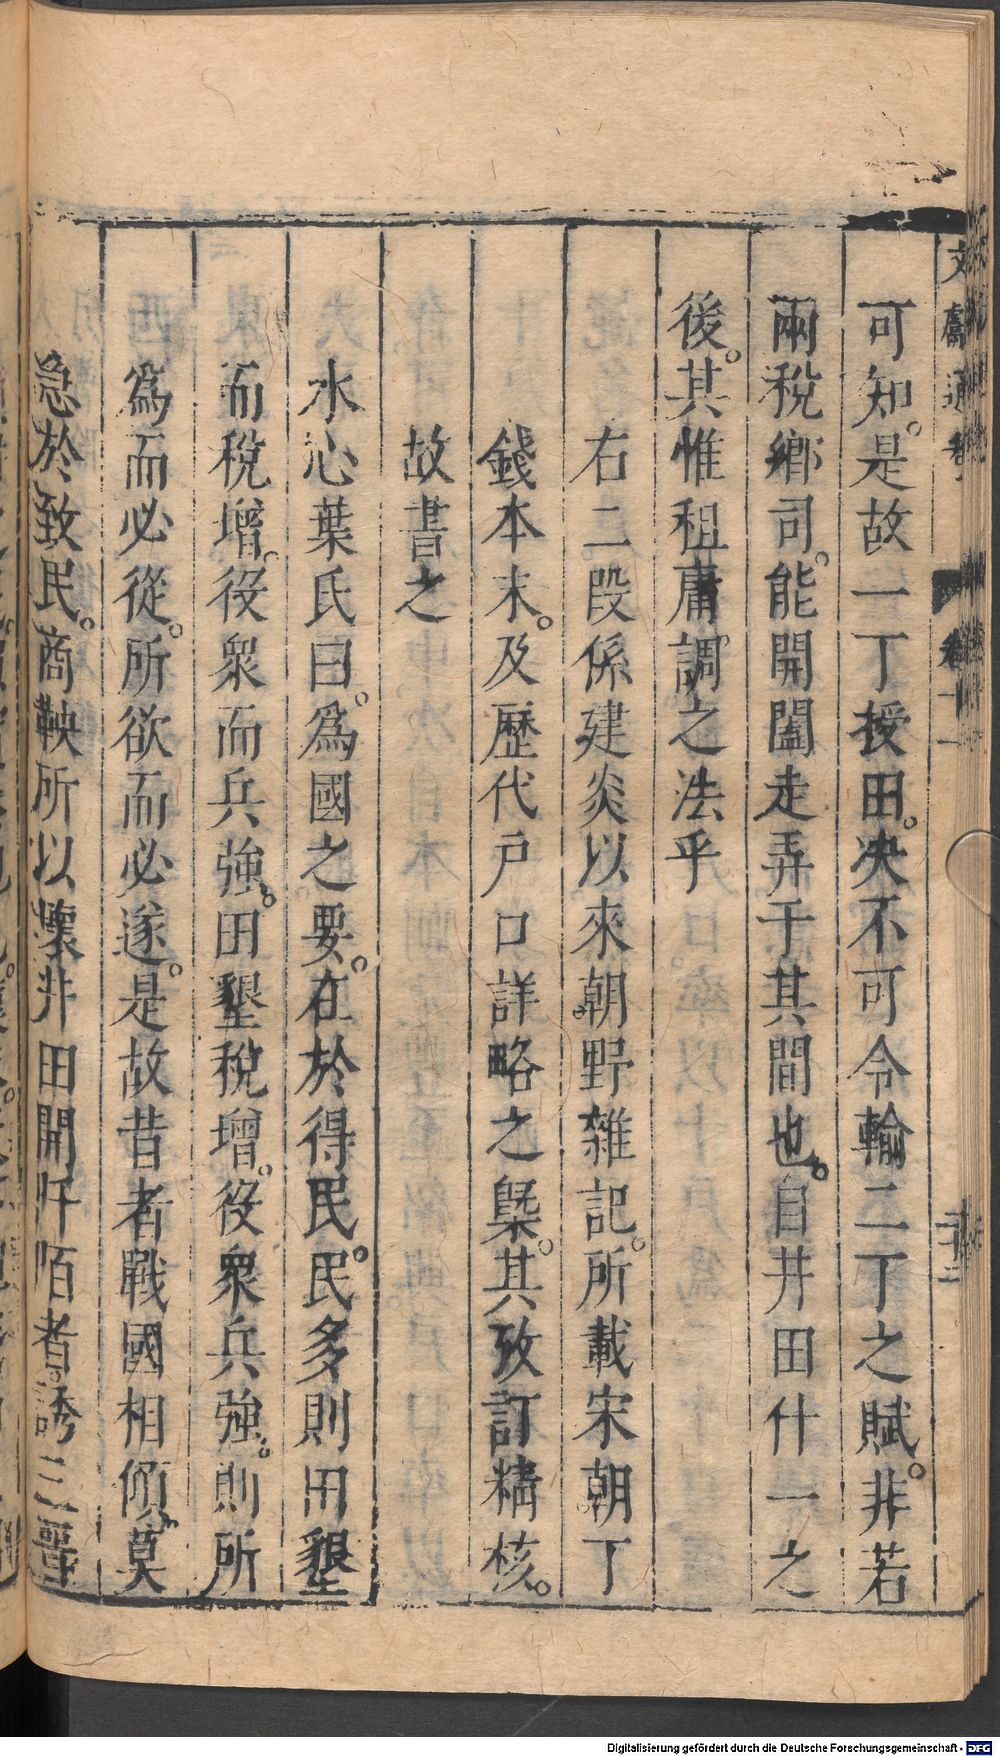 文獻通考 卷十一
可知。是故一丁授田。决不可令輸二丁之賦。非若
兩稅鄉司。能開闔走弄于其間也。自井田什一之
後。其惟租庸調之法乎
右二段係建炎以來朝野雜記。所載宋朝丁
錢本末。及歷代戶口詳略之槩。其攷訂精核。
故書之
水心葉氏曰。爲國之要。在於得民。民多則田墾
而稅增。役衆而兵強。田墾稅增。役衆兵強。則所
爲而必從。所欲而必遂。是故昔者戰國相傾。莫
急於致民。商鞅所以壞井田開阡陌者。誘三晉
Digitalisierung gefördert durch die Deutsche Forschungsgemeinschaft - DFG